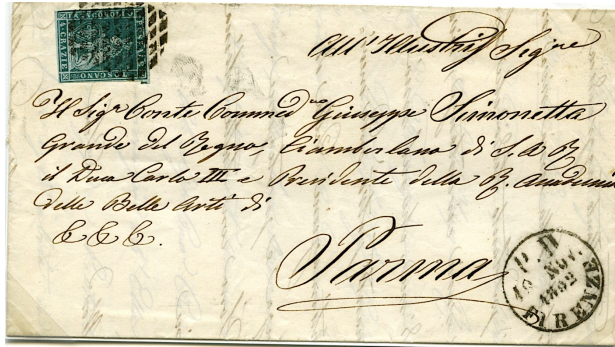 4 CRAZIE
TOSCANO
All' Illustris Sigre
Il Sigr Conte Commed Giuseppe Simonetta
Grande del Regno, Ciamberlano di S. A. R.
il Duca Carlo III e Presidente della R. Accademia
delle Belle Arti di
& & &.
Parma
P. D
10 NOV.
1852
FIRENZE